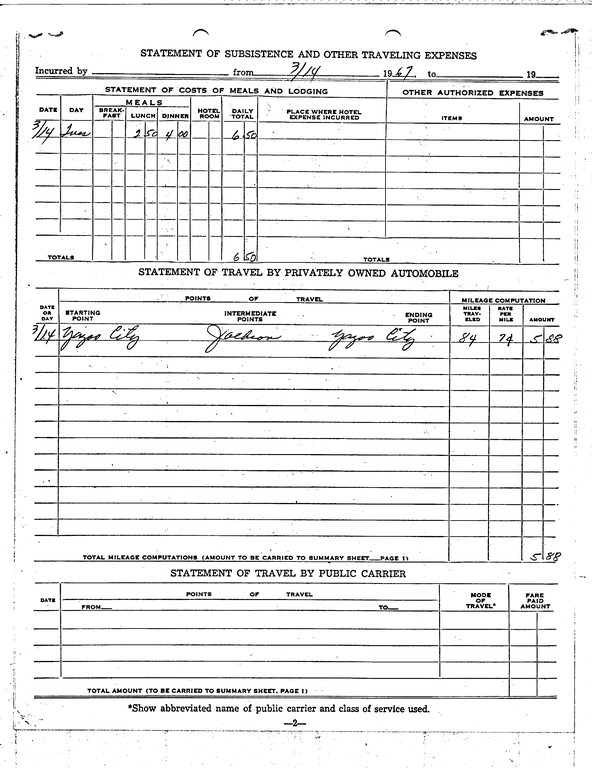 STATEMENT OF SUBSISTENCE AND OTHER TRAVELING EXPENSES
Incurred by from 3/14 1967, to 19
STATEMENT OF COSTS OF MEALS AND LODGING OTHER AUTHORIZED EXPENSES
DATE DAY MEALS BREAK-FAST LUNCH DINNER HOTEL ROOM DAILY TOTAL PLACE WHERE HOTEL EXPENSE INCURRED ITEMS AMOUNT
3/14 Tues 2 50 4 00 6 50
TOTALS 6 50 TOTALS
STATEMENT OF TRAVEL BY PRIVATELY OWNED AUTOMOBILE
POINTS OF TRAVEL MILEAGE COMPUTATION
DATE OR DAY STARTING POINT INTERMEDIATE POINTS ENDING POINT MILES TRAV-ELED RATE PER MILE AMOUNT
3/14 Yazoo City Jackson Yazoo City 84 7¢ 5 88
TOTAL MILEAGE COMPUTATIONS (AMOUNT TO BE CARRIED TO SUMMARY SHEET__PAGE 1) 5 88
STATEMENT OF TRAVEL BY PUBLIC CARRIER
DATE POINTS OF TRAVEL MODE OF TRAVEL* FARE PAID AMOUNT
FROM__ TO__
TOTAL AMOUNT (TO BE CARRIED TO SUMMARY SHEET. PAGE 1)
*Show abbreviated name of public carrier and class of service used.
—2—